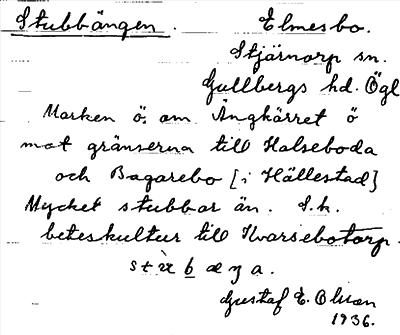 Stubbängen. Elmesbo.
Stjärnorp sn.
Gullbergs hd. Ögl
Marken ö. om Ängkärret ö
mot gränserna till Halseboda
och Bagarebo [i Hällestad]
Mycket stubbar än. S.k.
beteskultur till Kvarsebotorp.
Gustaf E. Olson
1936.